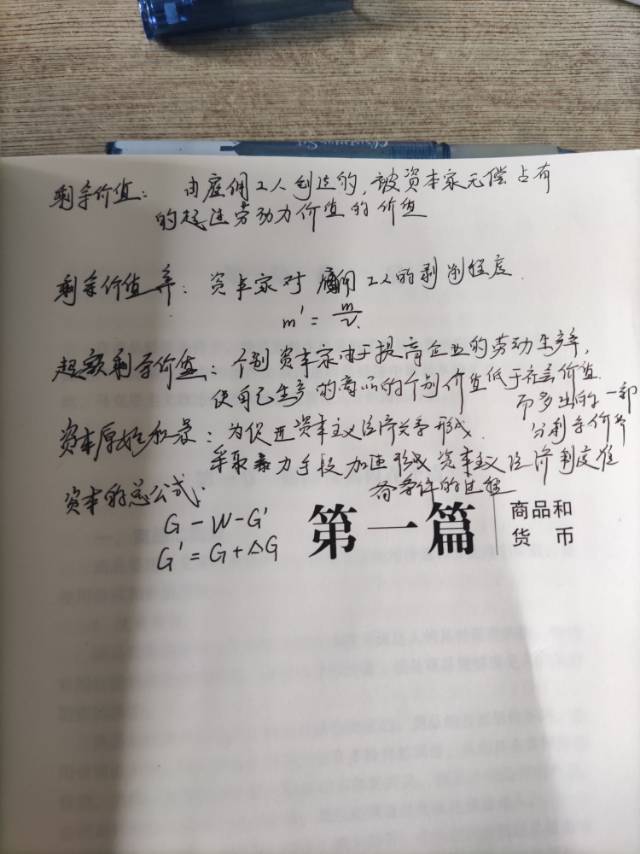 剩余价值：由雇佣工人创造的，被资本家无偿占有
的超过劳动力价值的价值
剩余价值率：资本家对雇佣工人的剥削程度.
m' = m/v.
超额剩余价值：个别资本家由于提高企业的劳动生产率，
使自己生产的商品的个别价值低于社会价值
而多出的一部
分剩余价值
资本原始积累：为促进资本主义经济关系形成.
采取暴力手段加速形成资本主义经济制度准
备条件的过程
资本的总公式：
G - W - G'
G' = G + ΔG
第一篇
商品和
货币